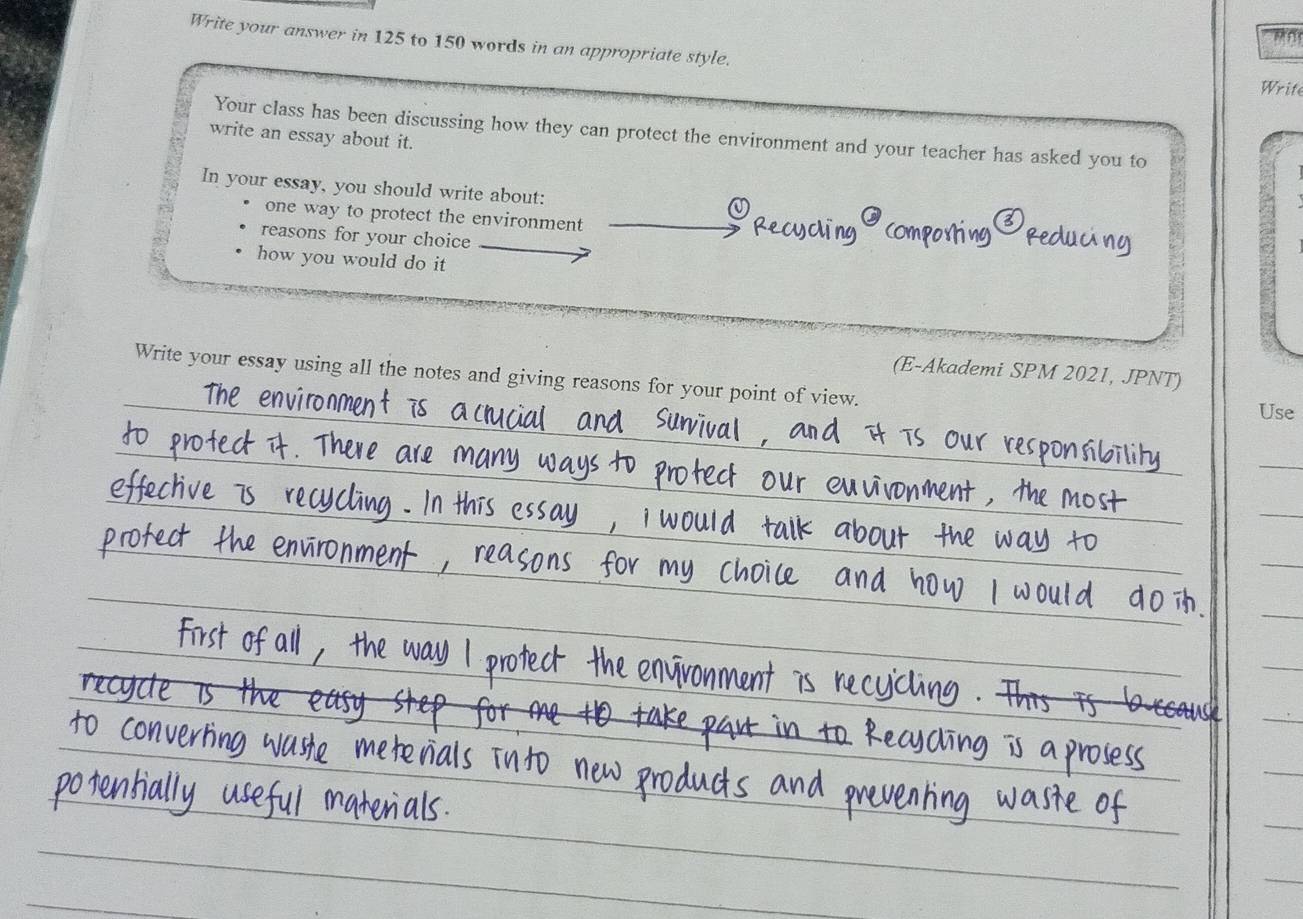 Write your answer in 125 to 150 words in an appropriate style.
Write
Your class has been discussing how they can protect the environment and your teacher has asked you to
write an essay about it.
In your essay, you should write about:
• one way to protect the environment
① Recycling ② comporting ③ Reducing
• reasons for your choice
• how you would do it
(E-Akademi SPM 2021, JPNT)
Write your essay using all the notes and giving reasons for your point of view.
Use
The environment is a crucial and survival, and it is our responsibility
to protect it. There are many ways to protect our euvironment, the most
effective is recycling. In this essay, i would talk about the way to
protect the environment, reasons for my choice and how I would do ih.
First of all, the way I protect the environment is recycling. This is because
recycle is the easy step for me to take part in to Recycling is a prosess
to converting waste meterials into new products and preventing waste of
potentially useful materials.